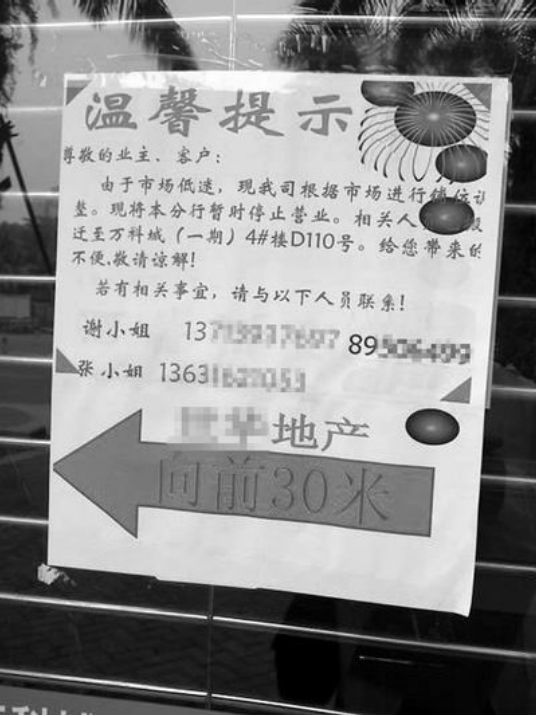 温馨提示
尊敬的业主、客户:
由于市场低迷,现我司根据市场进行
整。现将本分行暂时停止营业。相关人
迁至万科城(一期)4#楼D110号。给您带来的
不便,敬请谅解!
若有相关事宜,请与以下人员联系!
谢小姐 13 89
张小姐 13631
地产
向前30米